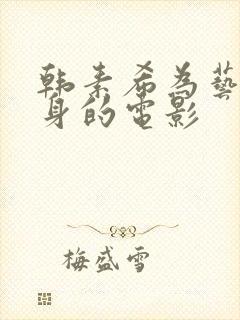 韩素希为藝
身的电影
梅盛雪